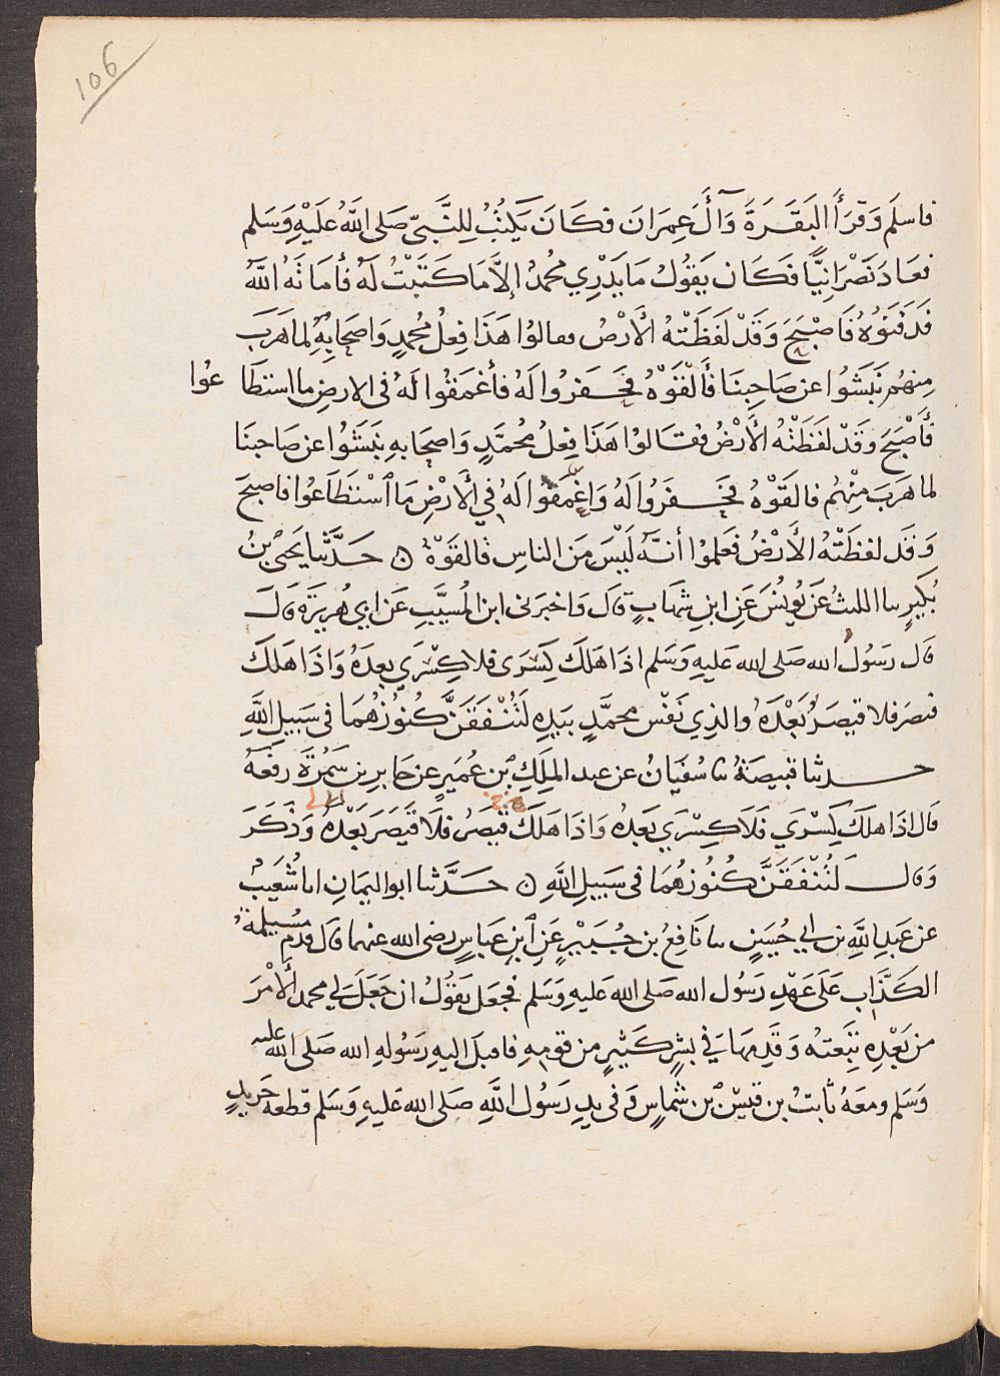 106
فاسلَم وَقَرَأَ البَقَرَةَ وَآلَ عِمرَانَ فكَانَ يَكتُبُ لِلنَّبِيِّ صَلى اللَّهُ عَلَيْهِ وَسَلم
فعَادَ نَصْرَانِيًّا فَكَان يَقُولُ مَا يَدْرِي مُحمدٌ إلاَّ مَا كَتَبْتُ لَهُ فأمَاتَهُ اللَّهُ
فَدَفَنُوْهُ فَاصْبَحَ وَقَدْ لَفَظَتْهُ الأَرْضُ فقالوُا هَذَا فِعلُ مُحمدٍ وَاصحَابِهِ لما هَرَبَ
مِنهُم نَبَشُوا عن صَاحِبنَا فَأَلْقَوْهُ فحَفرُوا لهُ فأعْمَقُوا لهُ فى الارضِ ما استطَاعُوا
فأَصْبَحَ وقَدْ لفَظَتْهُ الأَرْضُ فقَالوُا هَذَا فِعلُ مُحمَّدٍ وَاصحَابهِ نبَشُوا عن صَاحبنَا
لما هَرَبَ مِنْهُم فالقَوْهُ فحَفَرُوا لهُ وَاعْمَقُوا لهُ فِي الأَرْضِ مَا اسْتَطَاعُوا فاصبحَ
وَقَد لفظَتْهُ الأَرْضُ فَعَلموُا أنهُ لَيْسَ مِنَ الناسِ فالقَوْهُ ن حَدَّثنا يَحيَى بنُ
بُكَيرٍ نا الليثُ عَن يُونسَ عَنِ ابنِ شِهَابٍ قالَ وَاخبَرَنى ابنُ المُسيَّبِ عَن ابي هُريرَةَ قالَ
قال رَسُولُ الله صَلى الله عَليهِ وَسَلم اذَا هَلَكَ كِسْرَى فلا كِسْرَي بعدَهُ وَاذَا هَلكَ
قيصَر فلا قيصَرَ بَعْدَهُ والذِي نَفْس محمَّدٍ بيَدِهِ لَتُنْفَقَنَّ كُنوُزهُمَا فى سَبيلِ اللَّهِ
حدثنا قبيصَةُ نا سُفيَانُ عن عبد المَلِكِ بن عُمَيرٍ عن جَابرِ بنِ سَمُرَةَ رفعَهُ
قال اذَا هلَكَ كِسْرَي فَلَا كِسْرَي بَعدَهُ وَاذَا هَلَكَ قَيصَرُ فلَا قَيْصَرَ بَعْدَهُ وَذَكَرَ
وَقالَ لَتُنْفَقَنَّ كُنُوزهُمَا فى سَبيلِ اللَّهِ ن حَدَّثنا ابو اليَمانِ انا شُعَيبٌ
عن عَبدِ اللَّهِ بن ابي حُسَينٍ نا نَافِعُ بن جُبَيْرٍ عَنِ ابنِ عَباسٍ رضى الله عنهما قالَ قدِمَ مُسيلمةُ
الكَذَّابُ عَلَى عَهْدِ رَسُول الله صَلى الله عَليهِ وَسَلم فجعَل يقُولُ ان جَعَلَ لي محمد الأَمْرَ
من بَعْدِهِ تبِعتهُ وَقَدِمهَا فى بشرٍ كَثيرٍ من قومِهِ فاقبلَ اليهِ رَسُوله الله صَلى الله عليه
وَسَلم ومعَهُ ثابتُ بن قيسٍ بن شماسٍ وَفى يدِ رَسُول اللَّهِ صَلى الله عَليهِ وَسَلم قطعة جَريدٍ